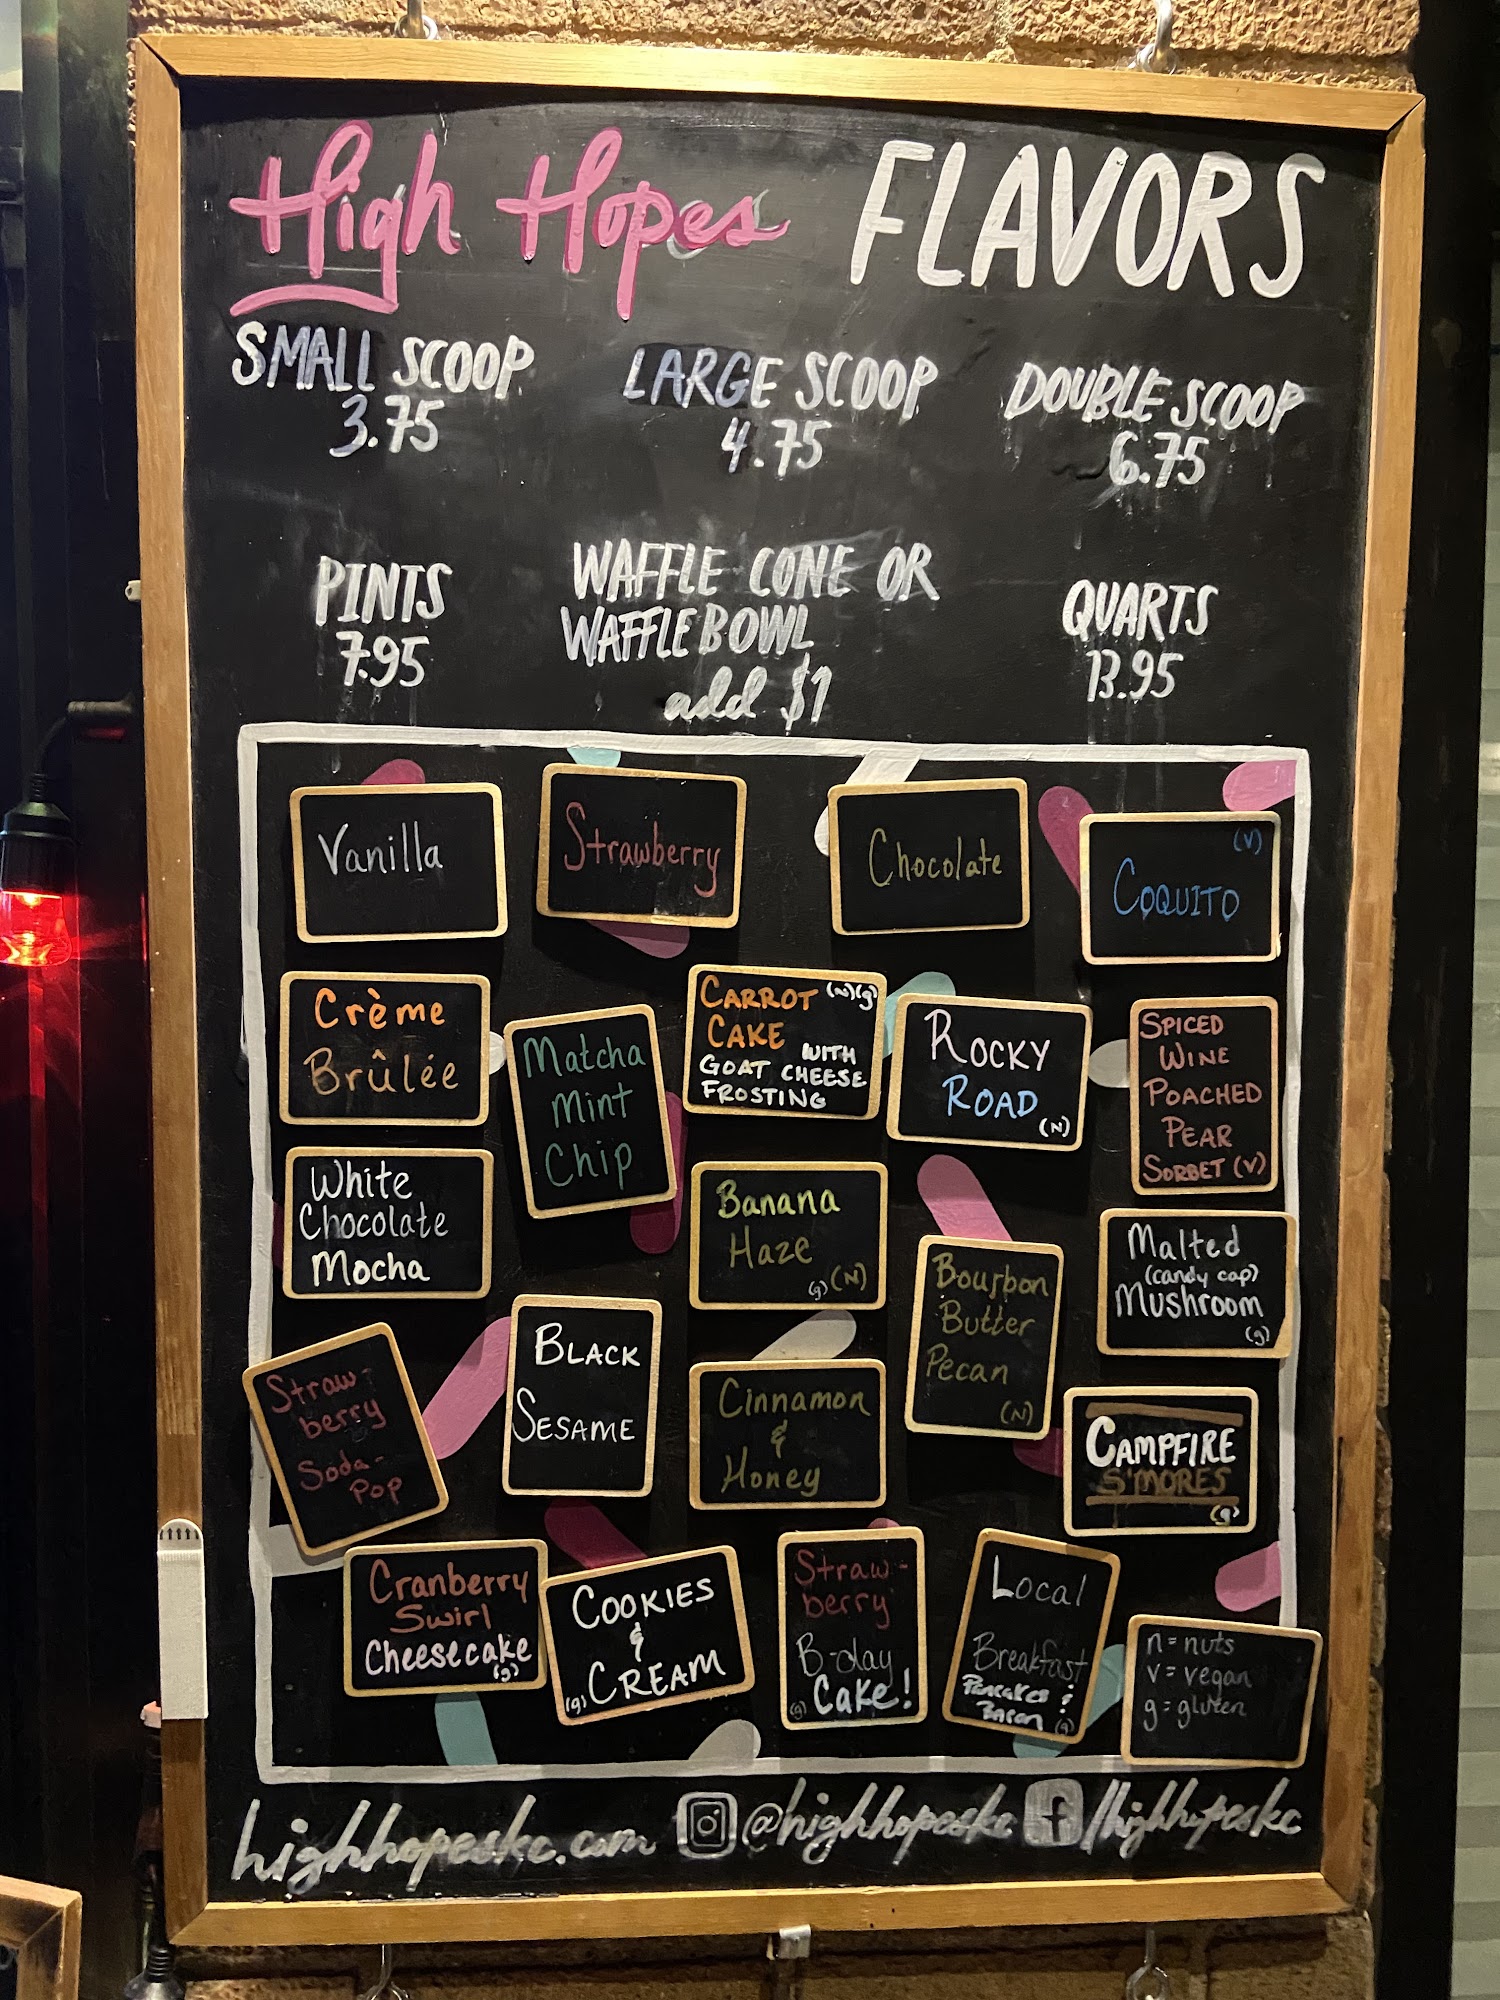 High Hopes FLAVORS
SMALL SCOOP
3.75
LARGE SCOOP
4.75
DOUBLE SCOOP
6.75
PINTS
7.95
WAFFLE CONE OR
WAFFLE BOWL
add $1
QUARTS
13.95
Vanilla
Strawberry
Chocolate
(V)
COQUITO
Crème
Brûlée
Matcha
mint
Chip
CARROT (N)(g)
CAKE WITH
GOAT CHEESE
FROSTING
ROCKY
ROAD
(N)
SPICED
WINE
POACHED
PEAR
SORBET (V)
White
Chocolate
Mocha
Banana
Haze
(g)(N)
Bourbon
Butter
Pecan
(N)
Malted
(candy cap)
Mushroom
(g)
Straw-
berry
Soda-
Pop
BLACK
SESAME
Cinnamon
&
Honey
CAMPFIRE
S'MORES
(g)
Cranberry
Swirl
Cheesecake
(g)
COOKIES
&
(g) CREAM
Straw-
berry
B-day
(g) Cake!
Local
Breakfast
Pancakes &
Bacon (g)
n = nuts
v = vegan
g = gluten
highhopeskc.com @highhopeskc f /highhopeskc